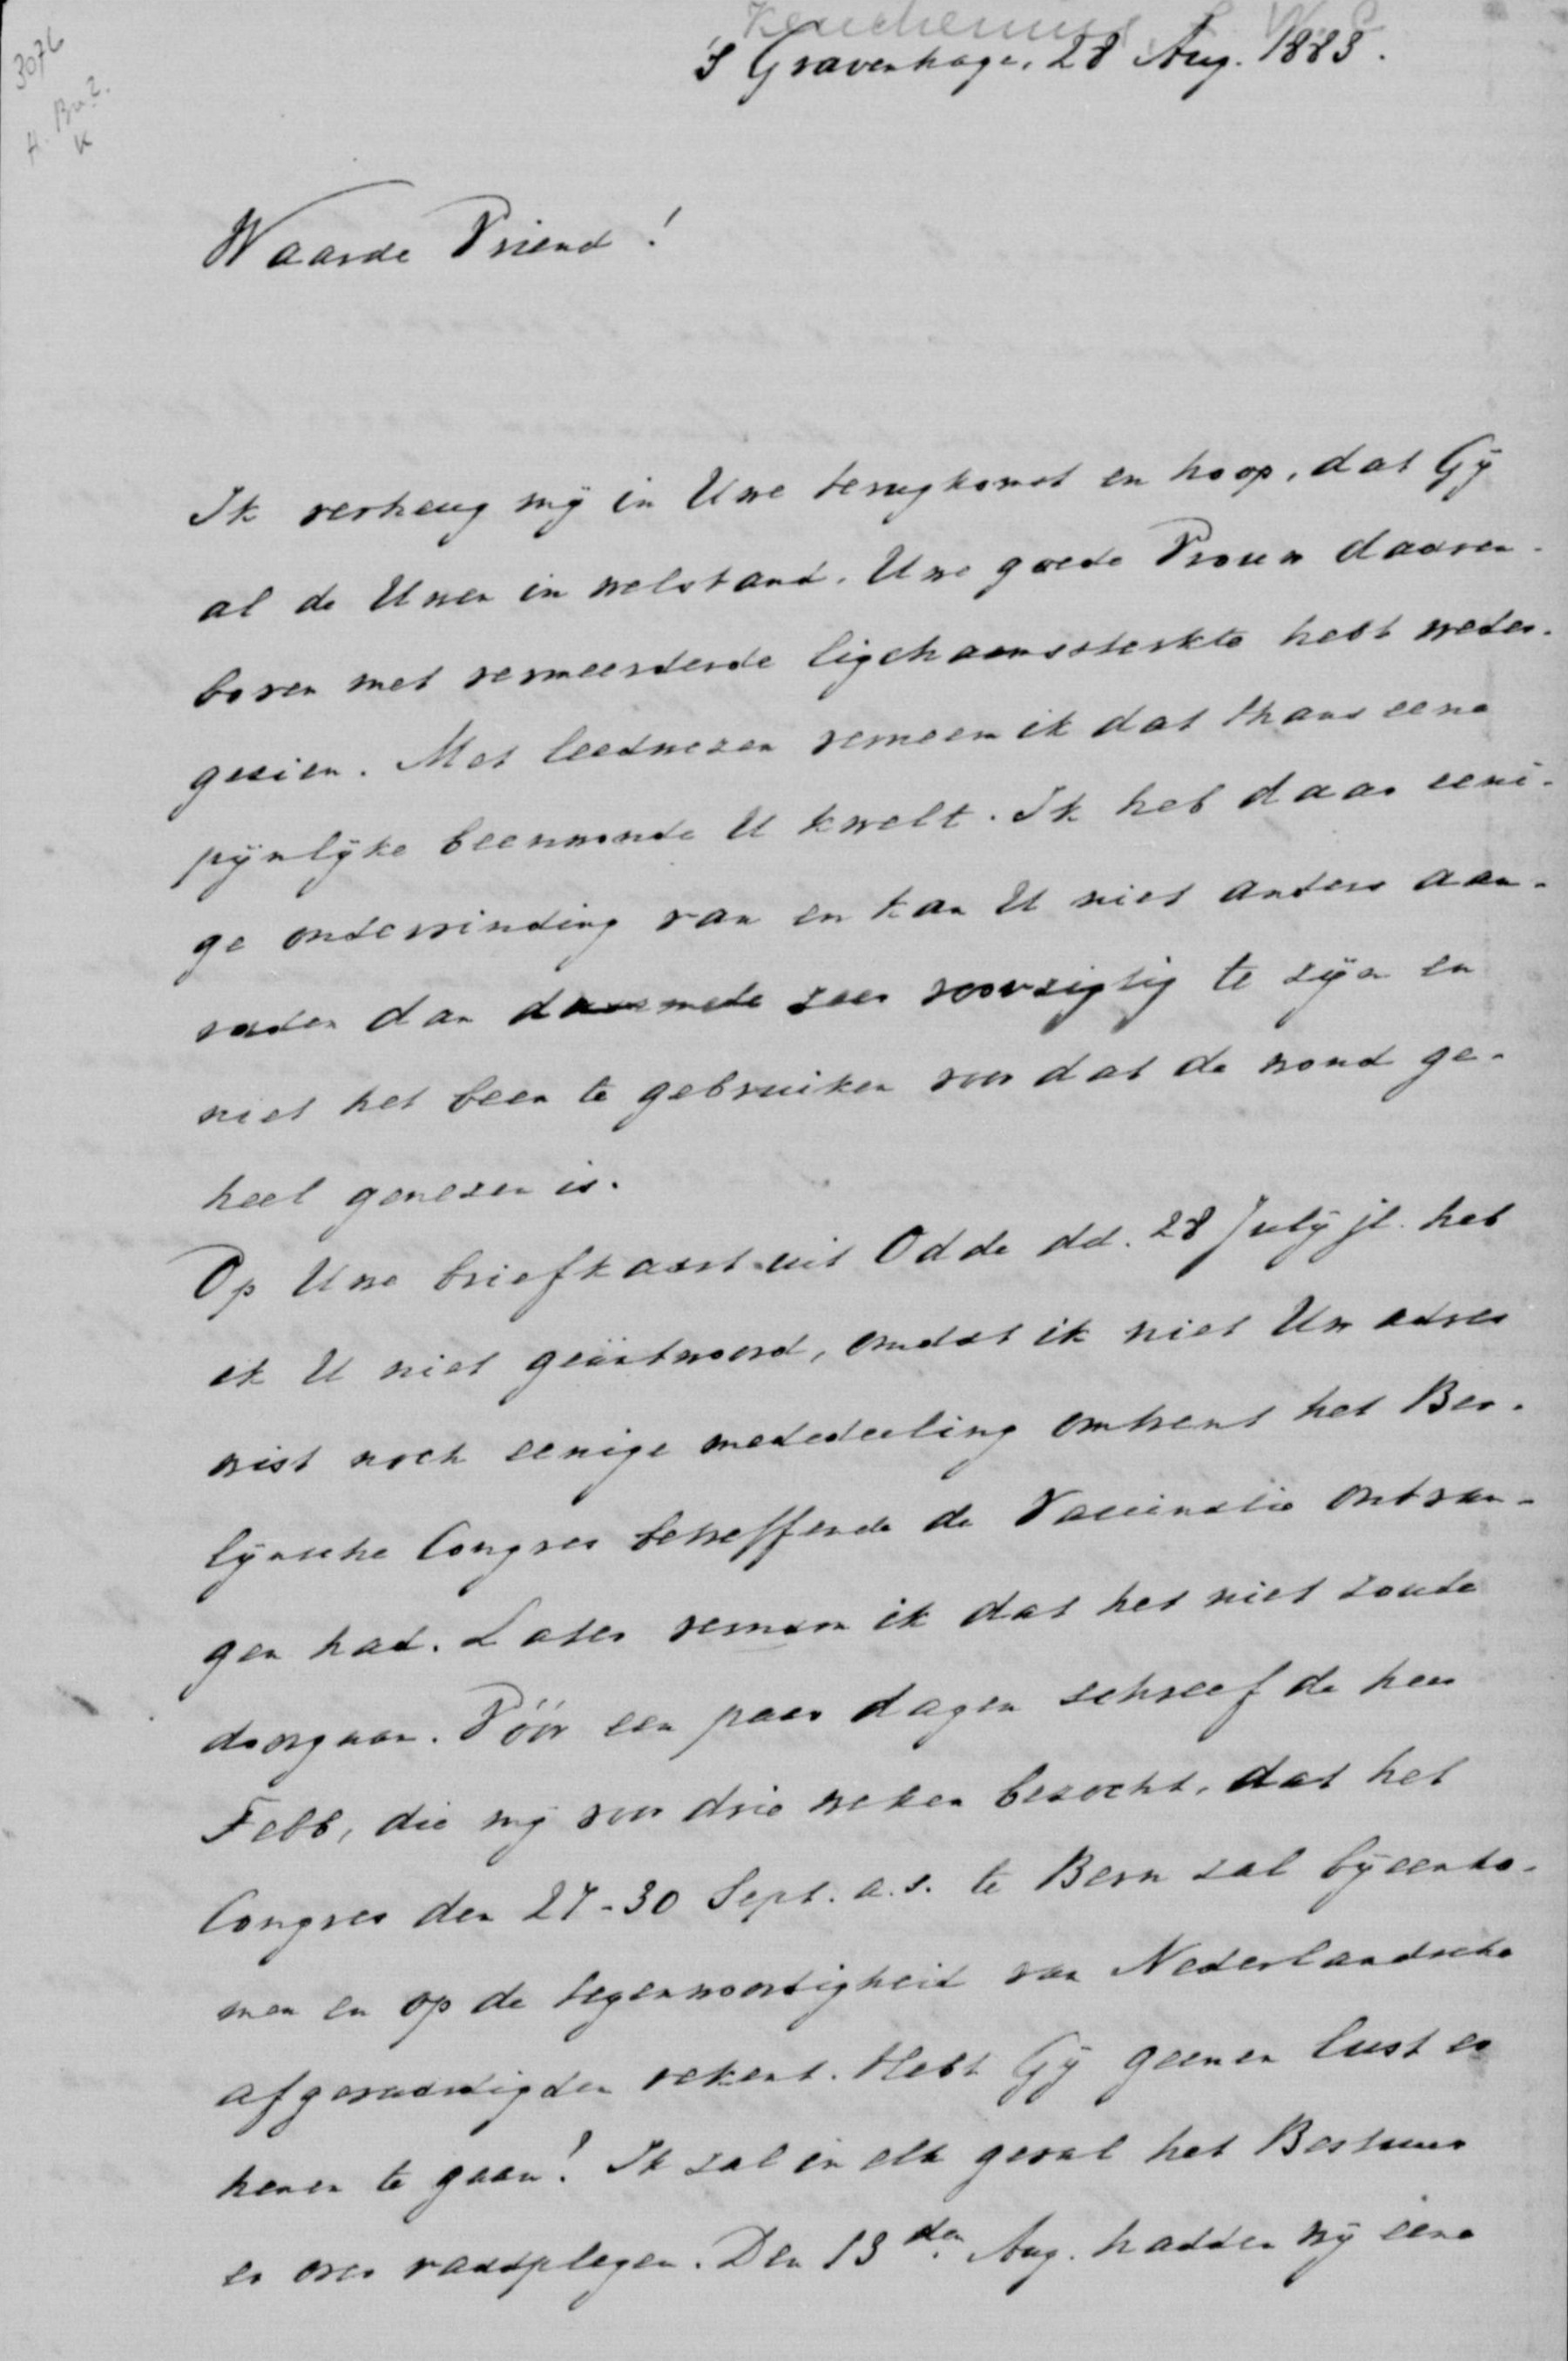 3076
H. Br. 2.
K
Keuchenius L W C
'S Gravenhage, 28 Aug. 1883.
Waarde Vriend!
Ik verheug mÿ in Uwe terugkomst en hoop, dat Gÿ
al de Uwen in welstand, Uwe goede Vrouw daaren-
boven met vermeerderde ligchaamssterkte hebt weder-
gezien. Met leedwezen verneem ik dat thans eene
pÿnlÿke beenwonde U kwelt. Ik heb daar eeni-
ge ondervinding van en kan U niet anders aan-
raden dan daarmede zeer voorzigtig te zÿn en
niet het been te gebruiken voor dat de wond ge-
heel genezen is.
Op Uwe briefkaart uit Odde dd. 28 Julÿ jl. heb
ik U niet geäntwoord, omdat ik niet Uw adres
wist noch eenige mededeeling omtrent het Ber-
lÿnsche Congres betreffende de Vaccinatie ontvan-
gen had. Later vernam ik dat het niet zoude
doorgaan. Vóór een paar dagen schreef de heer
Febb, die mÿ voor drie weken bezocht, dat het
Congres den 27-30 Sept. a.s. te Bern zal bÿeenko-
men en op de tegenwoordigheid van Nederlandsche
afgevaardigden rekent. Hebt Gÿ geenen lust er
henen te gaan? Ik zal in elk geval het Bestuur
er over raadplegen. Den 13den Aug. hadden wÿ eene